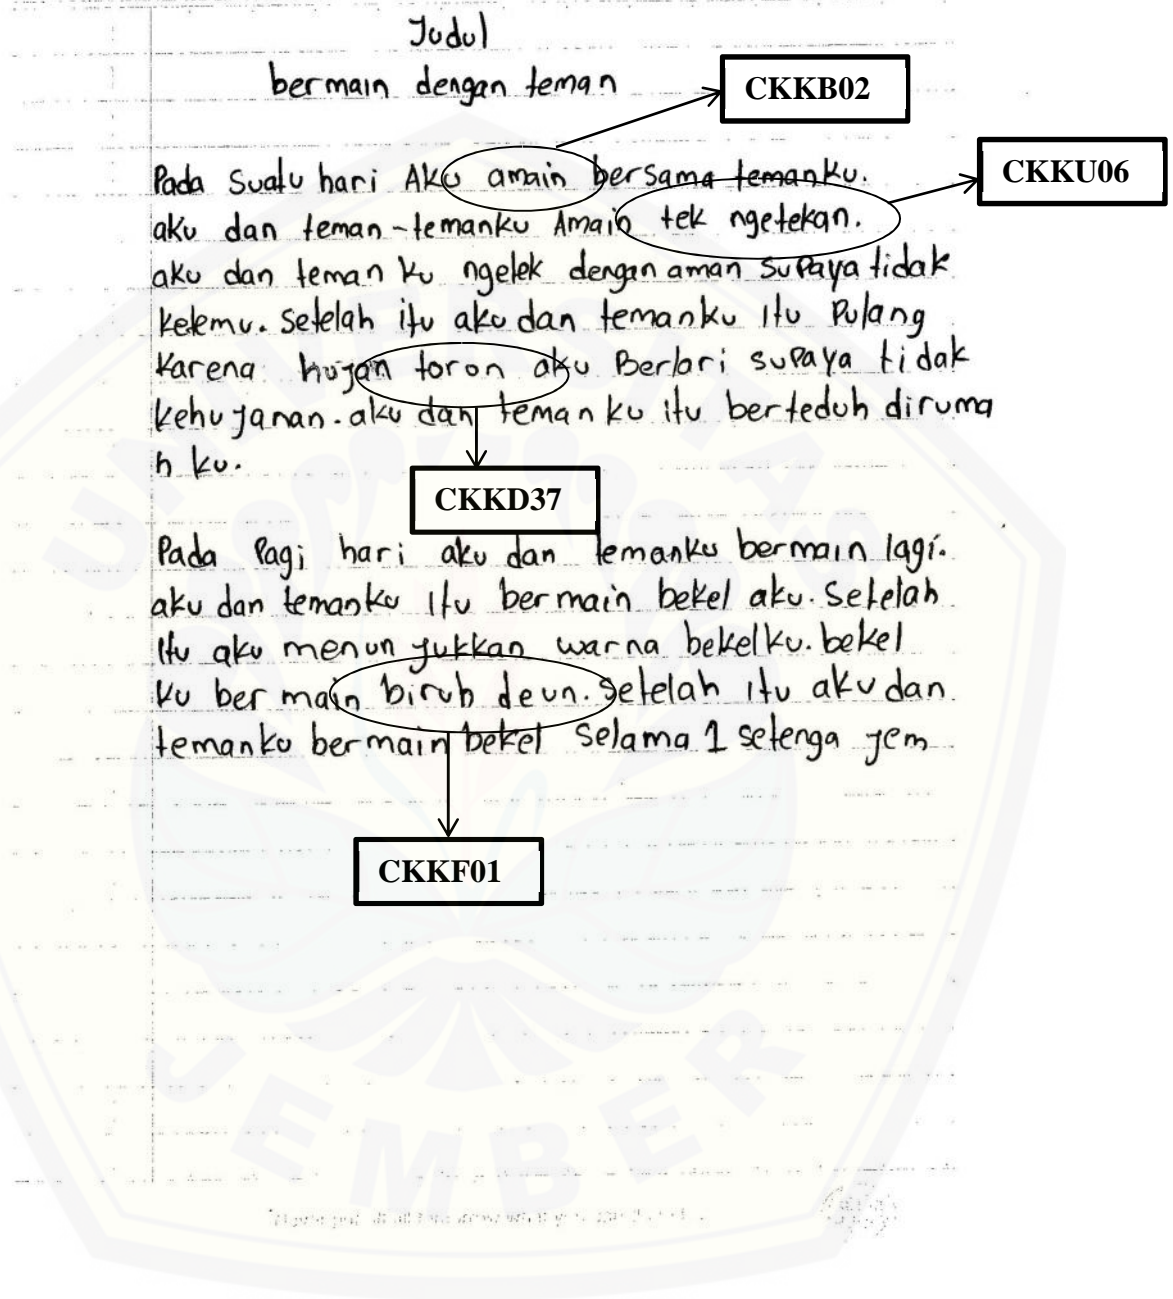 Judul
bermain dengan teman
CKKB02
Pada Suatu hari Aku amain bersama temanku.
CKKU06
aku dan teman-temanku Amain tek ngetekan.
aku dan teman ku ngetek dengan aman supaya tidak
ketemu. Setelah itu aku dan temanku Itu Pulang
karena hujan toron aku Berlari supaya tidak
kehujanan. aku dan teman ku itu berteduh diruma
h ku.
CKKD37
Pada Pagi hari aku dan temanku bermain lagi.
aku dan temanku Itu bermain bekel aku. Setelah
Itu aku menun jukkan warna bekelku. bekel
ku ber main biruh deun. Setelah Itu aku dan
temanku bermain bekel Selama 1 setenga jem
CKKF01
UNIVERSITAS
JEMBER